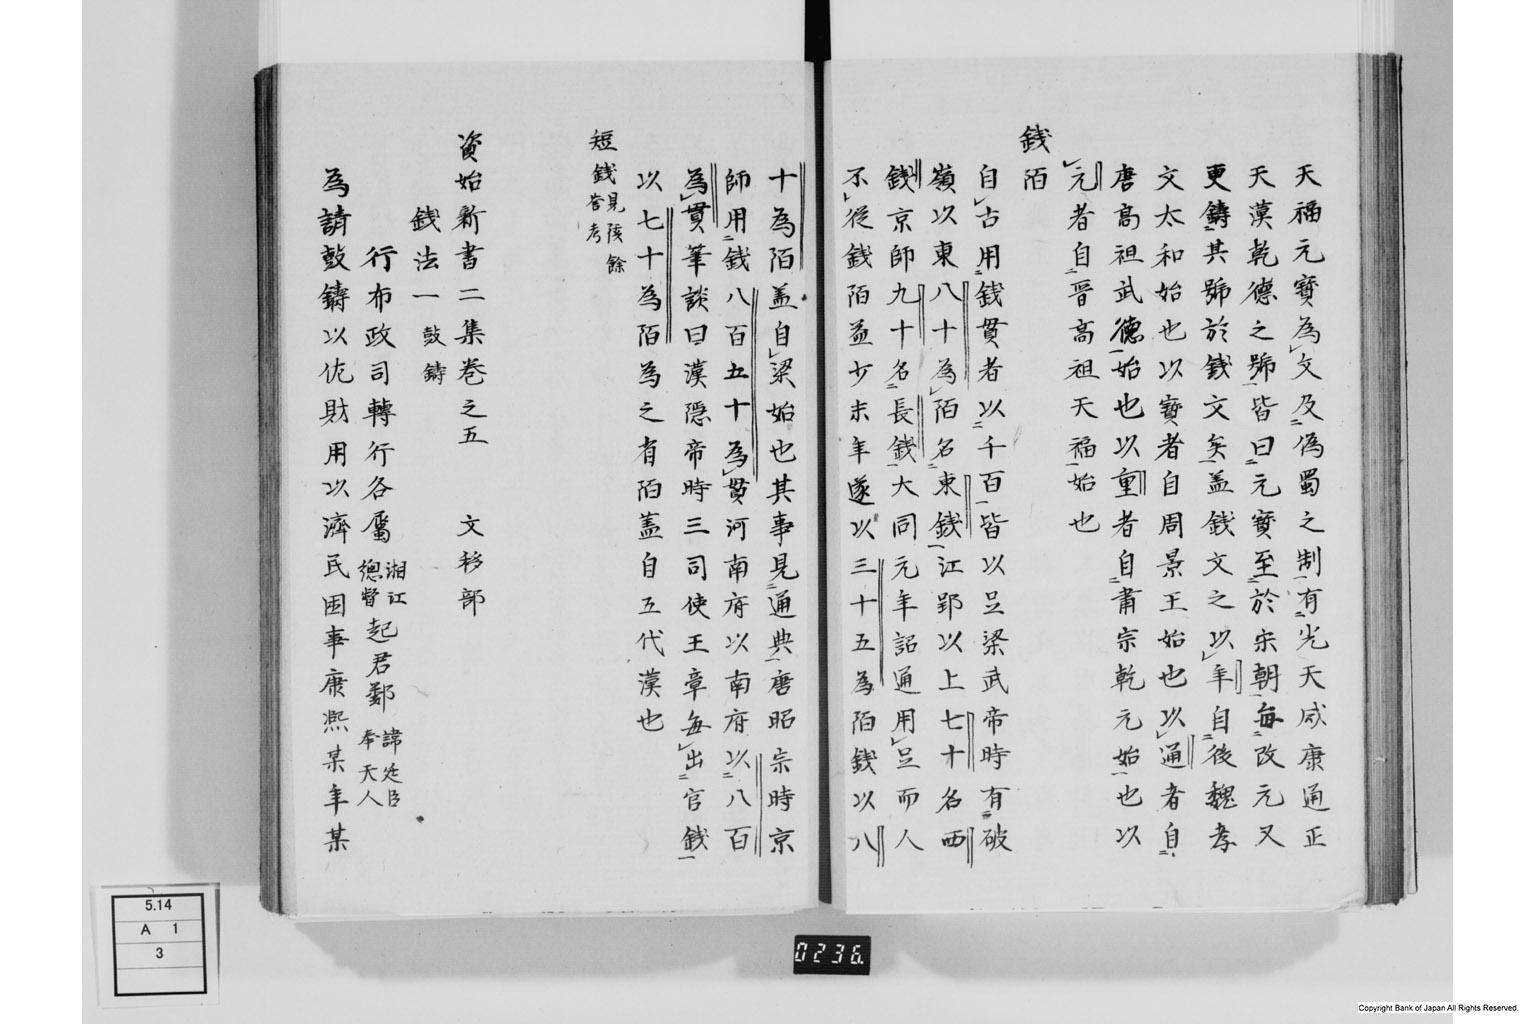 天福元寶為文及偽蜀之制有光天咸康通正
天漢乾德之號皆曰元寶至於宋朝每改元又
更鑄其號於錢文矣盖錢文之以年自後魏孝
文太和始也以寶者自周景王始也以通者自
唐高祖武德始也以重者自肅宗乾元始也以
元者自晋高祖天福始也
錢陌
自古用錢貫者以千百皆以足梁武帝時有破
嶺以東八十為陌名東錢江郢以上七十名西
錢京師九十名長錢大同元年詔通用足而人
不從錢陌益少末年遂以三十五為陌錢以八
十為陌盖自梁始也其事見通典唐昭宗時京
師用錢八百五十為貫河南府以南府以八百
為貫筆談曰漢隱帝時三司使王章每出官錢
以七十為陌為之省陌盖自五代漢也
短錢見陔餘
叢考
資始新書二集卷之五 文移部
錢法一 鼓鑄
行布政司轉行各屬 湘江
總督 起君鄭 諱廷臣
奉天人
為請鼓鑄以佐財用以濟民困事康熙某年某
5.14
A 1
3
0236.
Copyright Bank of Japan All Rights Reserved.